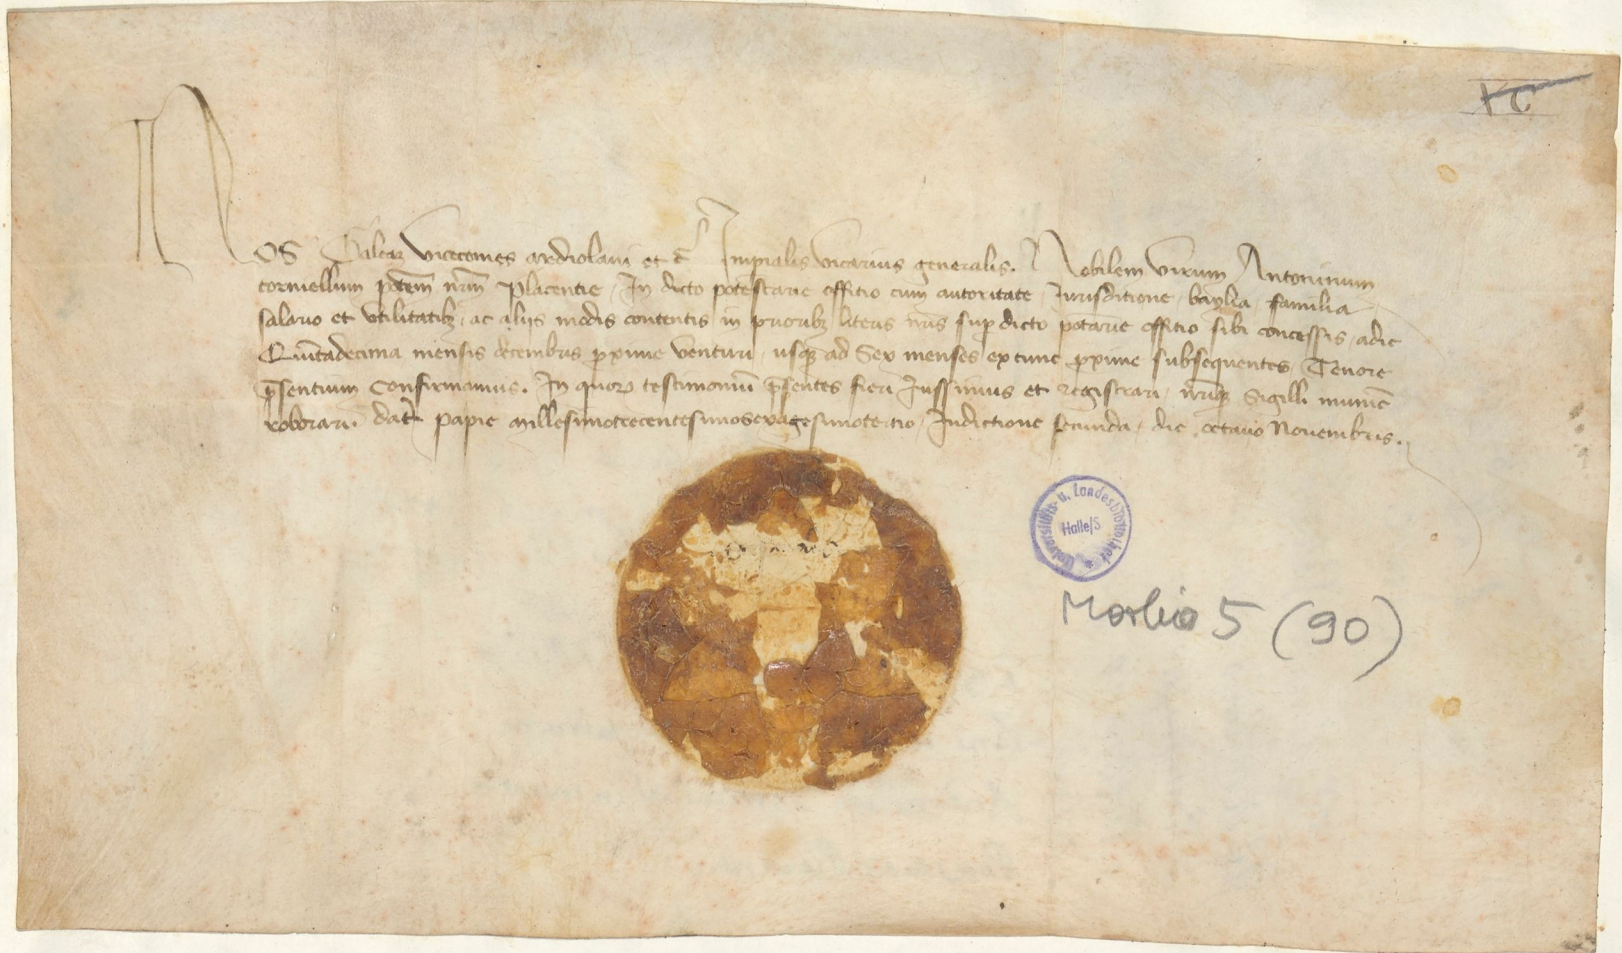 XC
NOS Galeaz vicecomes mediolani et c̄ Imp̄ialis vicarius generalis. Nobilem virum Antoninum
torniellum pot̄em nr̄m Placentie, In dicto potestarie offitio cum autoritate, Iurisditione, baylia, familia
salario et utilitatibꝫ, ac aliis modis contentis in prioribꝫ literis nr̄is sup̱ dicto pot̄arie offitio sibi concessis, adie
Quītadecima mensis decembris proxime venturi, usqꝫ ad Sex menses extunc proxime subsequentes, Tenore
p̄sentium Confirmamus. In quoꝝ testimoniū p̄sentes fieri Iussimus et registrari, nr̄iqꝫ Sigilli munīe
roborari. dat̄ papie Millesimotrecentesimosexagesimotertio, Indictione secunda, die octavo Novembris.
Universitäts- u. Landesbibliothek
Halle/S
Morbio 5 (90)